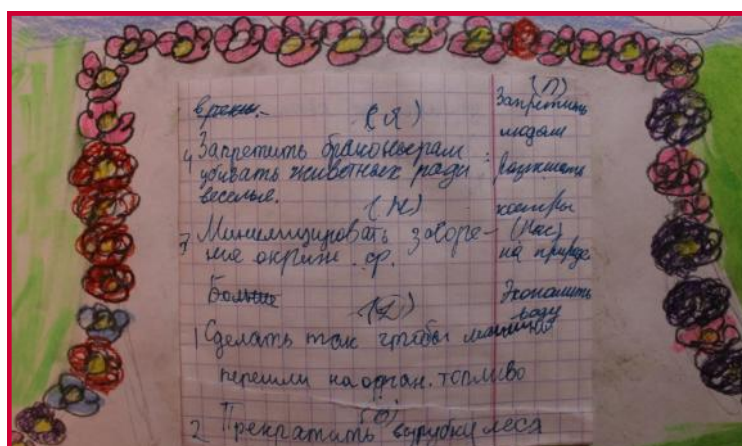 (Я)
4 Запретить браконьерам
убивать животных ради
веселья.
(М)
3 Минимизировать загоре-
ние окруж. ср.
Больше
(Д)
1 Сделать так чтобы машины
перешли на орган. топливо
(О)
2 Прекратить вырубку леса
(П)
Запретить
людям
разжигать
костры
(Нас)
на природе
Экономить
воду